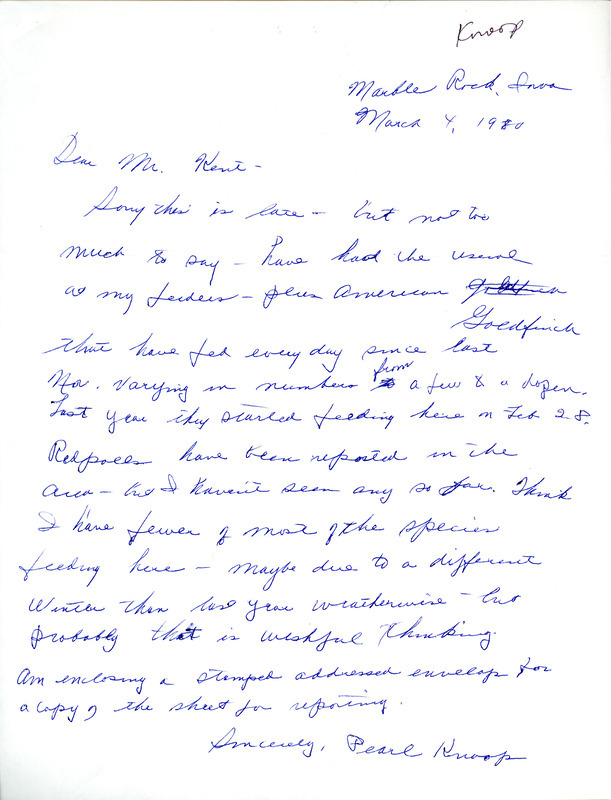 Knoop
Marble Rock, Iowa
March 4, 1980
Dear Mr. Kent -
Sorry this is late - but not too
much to say - have had the usual
at my feeders - plus American
Goldfinch
that have fed everyday since last
Nov. varying in numbers from a few to a dozen.
Last year they started feeding here on Feb 28.
Redpolls have been reported in the
area - but I haven't seen any so far. Think
I have fewer of most of the species
feeding here - maybe due to a different
Winter than last year weatherwise - but
probably that is wishful thinking.
Am enclosing a stamped addressed envelop for
a copy of the sheet for reporting.
Sincerely, Pearl Knoop